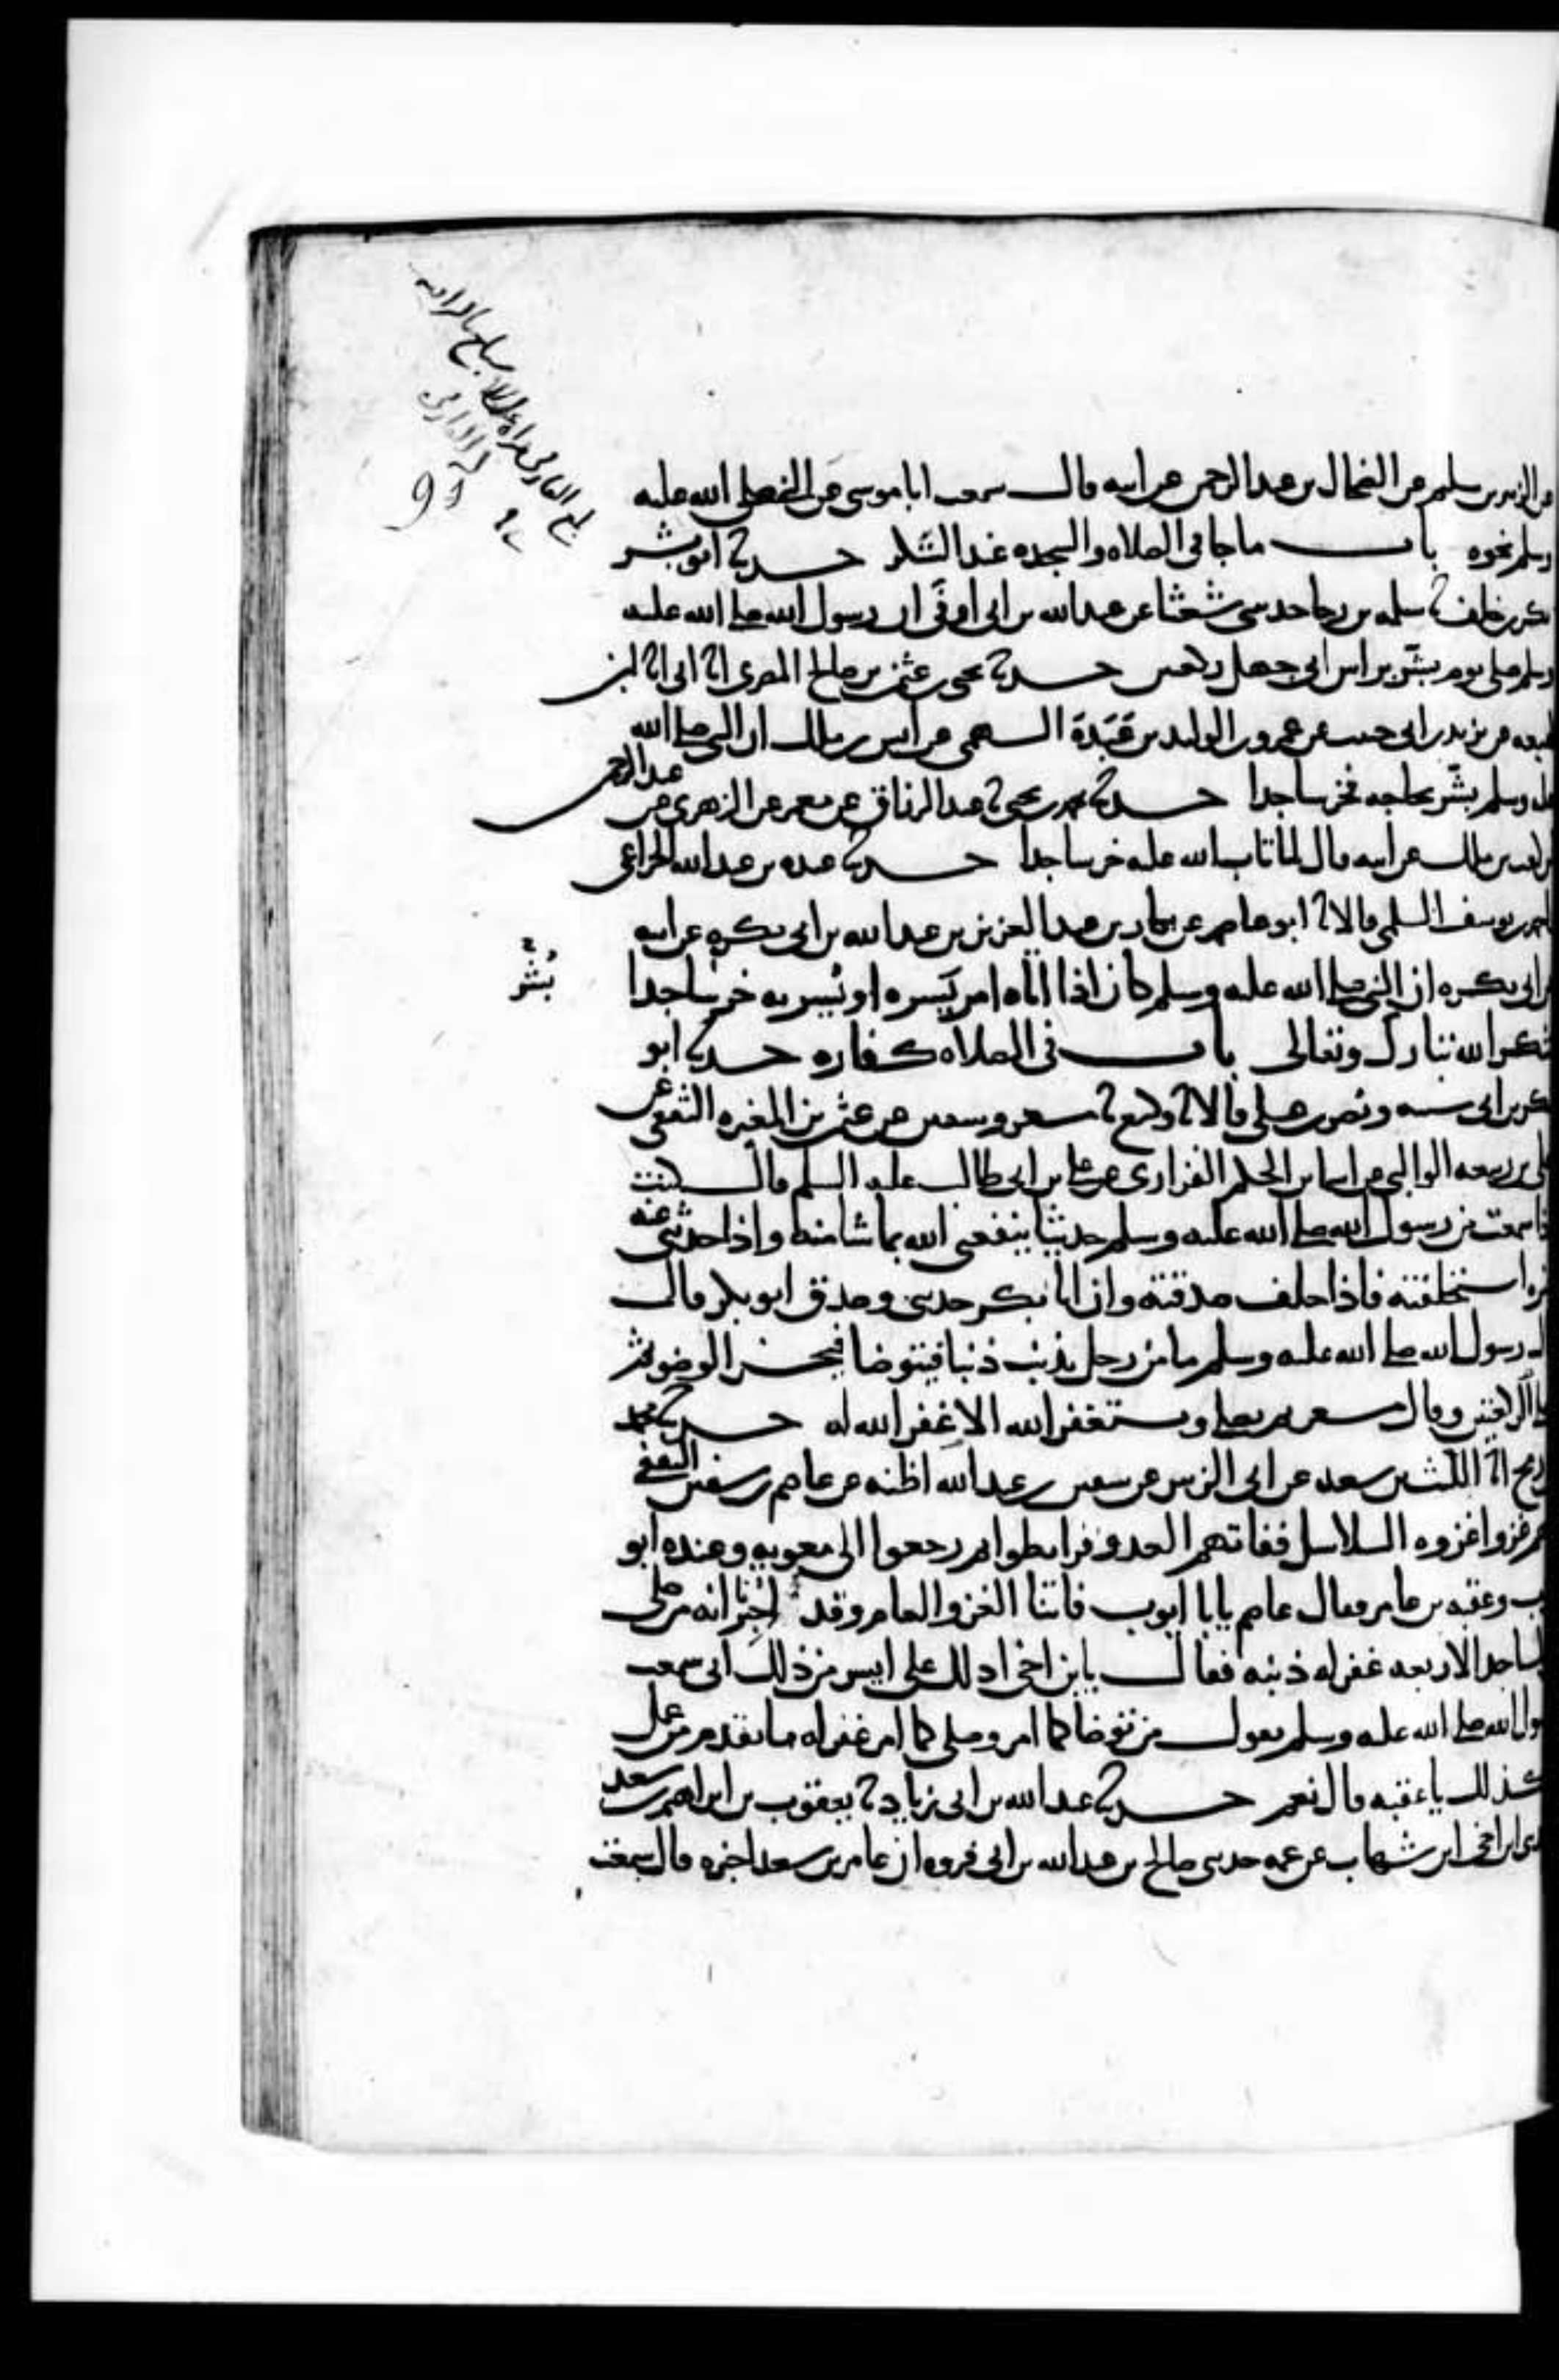 عن الزبير بن سليم عن الضحاك بن عبد الرحمن عن ابيه قال سمعت ابا موسى عن النبي صلى الله عليه
وسلم نحوه باب ما جا في الصلاه والسجده عند الشكر حدثنا ابو بشر
بكر بن خلف ثنا سلمه بن رجا حدثتني شعثا عن عبد الله بن ابي اوفى ان رسول الله صلى الله عليه
وسلم صلى يوم بشر براس ابي جهل ركعتين حدثنا يحيى بن عثمن بن صالح المصري انا ابي انا ابن
لهيعه عن يزيد بن ابي حبيب عن عمرو بن الوليد بن عَبَدَة السهمي عن انس بن ملك ان النبي صلى الله
عليه وسلم بشر بحاجه فخر ساجدا حدثنا محمد بن يحيى ثنا عبد الرزاق عن معمر عن الزهري عن عبد الرحمن
بن كعب بن ملك عن ابيه قال لما تاب الله عليه خر ساجدا حدثنا عبده بن عبد الله الخزاعي
واحمد بن يوسف السلمي قالا ثنا ابو عاصم عن بكار بن عبد العزيز بن عبد الله بن ابي بكره عن ابيه
عن ابي بكره ان النبي صلى الله عليه وسلم كان اذا اتاه امر يَسره او يُسر به خر ساجدا
بُشر
شكرا لله تبارك وتعالى باب في الصلاه كفاره حدثنا ابو
بكر بن ابي شيبه ونصر بن علي قالا ثنا وكيع ثنا مسعر وسفين عن عثمن بن المغيره الثقفي عن
علي بن ربيعه الوالبي عن اسما بن الحكم الفزاري عن علي بن ابي طالب عليه السلم قال كنت
اذا سمعت من رسول الله صلى الله عليه وسلم حديثا ينفعني الله بما شا منه واذا حدثني عنه
غيره استحلفته فاذا حلف صدقته وان ابا بكر حدثني وصدق ابو بكر قال
قال رسول الله صلى الله عليه وسلم ما من رجل يذنب ذنبا فيتوضا فيحسن الوضو ثم
يصلي الركعتين وقال مسعر ثم يصلي ويستغفر الله الا غفر الله له حدثنا محمد
بن رمح انا الليث بن سعد عن ابي الزبير عن سفين بن عبد الله اظنه عن عاصم بن سفين الثقفي
انهم غزوا غزوه السلاسل ففاتهم العدو فرابطوا ثم رجعوا الى معويه وعنده ابو
ايوب وعقبه بن عامر فقال عاصم يابا ايوب فاتنا الغزو العام وقد اخبرنا انه من صلى
في المساجد الاربعه غفر له ذنبه فقال يا بن اخي ادلك على ايسر من ذلك اني سمعت
رسول الله صلى الله عليه وسلم يقول من توضا كما امر وصلى كما امر غفر له ما تقدم من عمل
كذلك يا عقبه قال نعم حدثنا عبد الله بن ابي زياد ثنا يعقوب بن ابراهيم بن سعد
حدثني ابن اخي ابن شهاب عن عمه حدثني صالح بن عبد الله بن ابي فروه ان عامر بن سعد اخبره قال سمعت